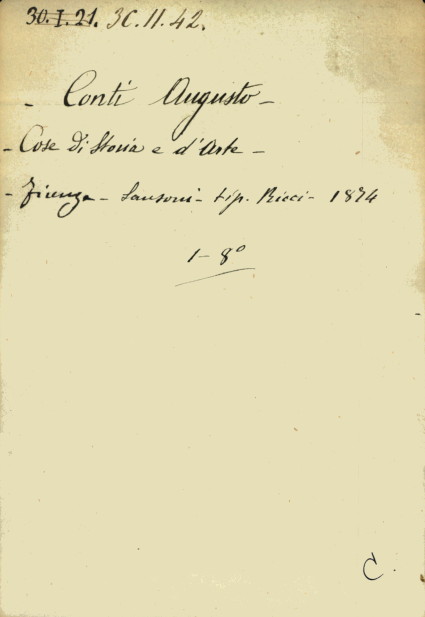 30.I.21. 3C.II.42.
- Conti Augusto -
- Cose di Storia e d'Arte -
- Firenze - Sansoni - tip. Ricci - 1874
1 - 8º
C.